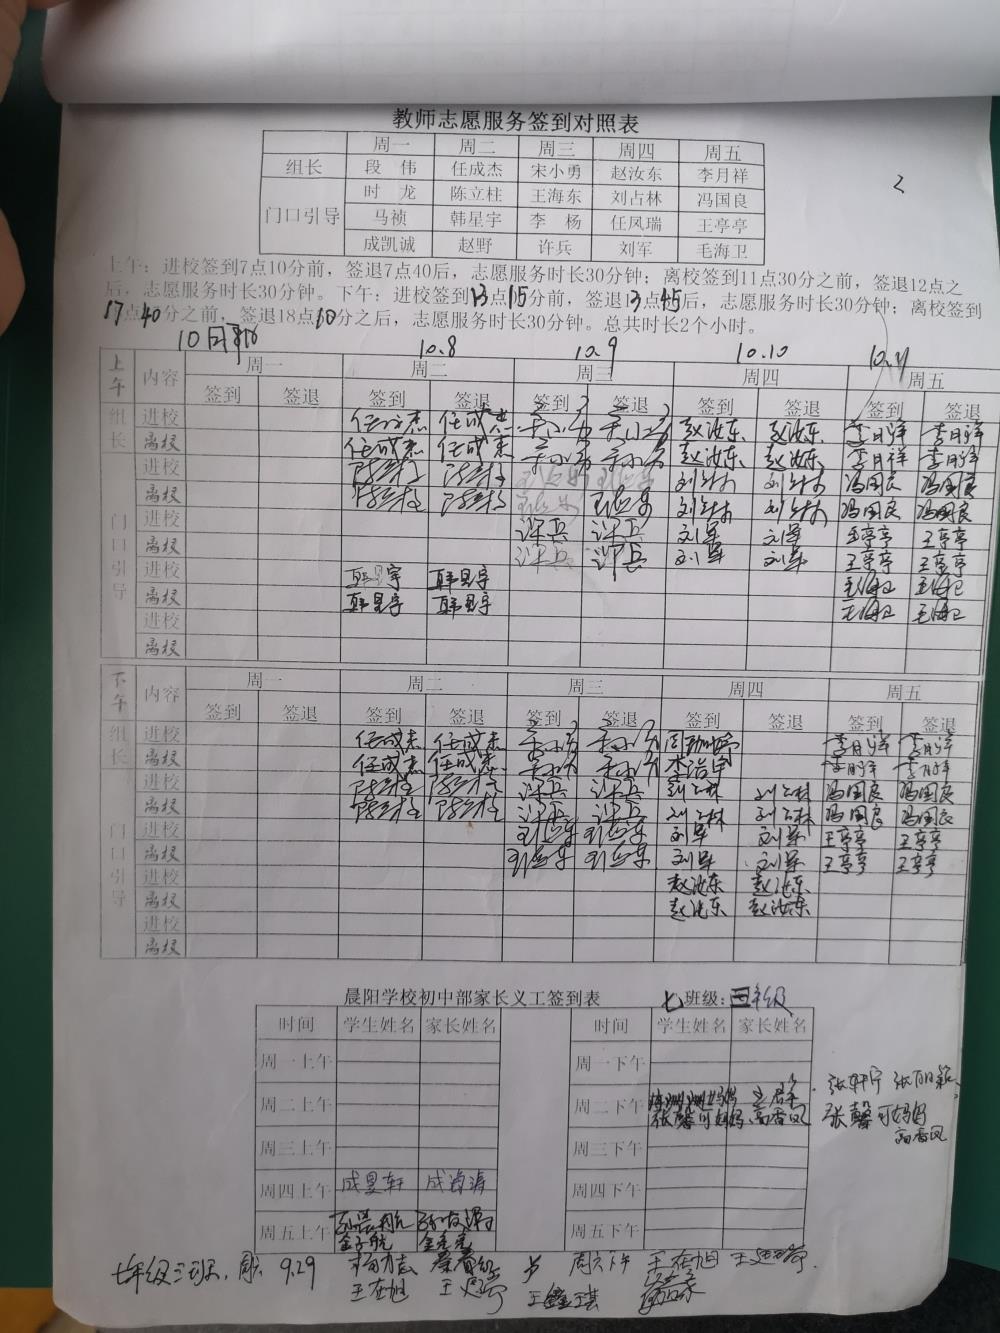 教师志愿服务签到对照表
周一 周二 周三 周四 周五
组长 段 伟 任成杰 宋小勇 赵汝东 李月祥
门口引导 时 龙 陈立柱 王海东 刘占林 冯国良
马祯 韩星宇 李 杨 任凤瑞 王亭亭
成凯诚 赵野 许兵 刘军 毛海卫
2
上午：进校签到7点10分前，签退7点40后，志愿服务时长30分钟；离校签到11点30分之前，签退12点之
后，志愿服务时长30分钟。下午：进校签到13点15分前，签退13点45后，志愿服务时长30分钟；离校签到
17点40分之前，签退18点10分之后，志愿服务时长30分钟。总共时长2个小时。
10.8 10.9 10.10 10.11
上午 内容 周一 周二 周三 周四 周五
签到 签退 签到 签退 签到 签退 签到 签退 签到 签退
组长 进校 任成杰 任成杰 宋小勇 宋小勇 赵汝东 赵汝东 李月祥 李月祥
离校 任成杰 任成杰 宋小勇 宋小勇 赵汝东 赵汝东 李月祥 李月祥
门口引导 进校 陈立柱 陈立柱 刘占林 刘占林 冯国良 冯国良
离校 陈立柱 陈立柱 刘占林 刘占林 冯国良 冯国良
进校 许兵 许兵 刘军 刘军 王亭亭 王亭亭
离校 许兵 许兵 刘军 刘军 王亭亭 王亭亭
进校 韩星宇 韩星宇 毛海卫 毛海卫
离校 韩星宇 韩星宇 毛海卫 毛海卫
进校
离校
下午 内容 周一 周二 周三 周四 周五
签到 签退 签到 签退 签到 签退 签到 签退 签到 签退
组长 进校 任成杰 任成杰 宋小勇 宋小勇 李月祥 李月祥
离校 任成杰 任成杰 宋小勇 宋小勇 李月祥 李月祥
门口引导 进校 陈立柱 陈立柱 许兵 许兵 刘占林 刘占林 冯国良 冯国良
离校 陈立柱 陈立柱 许兵 许兵 刘占林 刘占林 冯国良 冯国良
进校 刘军 刘军 王亭亭 王亭亭
离校 刘军 刘军 王亭亭 王亭亭
进校 赵汝东 赵汝东
离校 赵汝东 赵汝东
进校
离校
晨阳学校初中部家长义工签到表 七 班级：三年级
时间 学生姓名 家长姓名 时间 学生姓名 家长姓名
周一上午 周一下午
周二上午 周二下午
张馨可妈妈 高香凤
张轩宁
张馨可妈妈
高香凤
周三上午 周三下午
周四上午 成昊轩 成海涛 周四下午
周五上午 周五下午
金子航 金亮亮
七年级三班 周六 9.29 周六下午 王在旭
王在旭